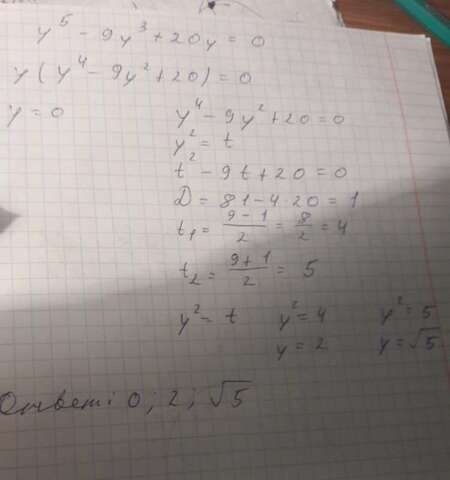 y⁵ - 9y³ + 20y = 0
y(y⁴ - 9y² + 20) = 0
y = 0
y⁴ - 9y² + 20 = 0
y² = t
t² - 9t + 20 = 0
D = 81 - 4·20 = 1
t₁ = (9-1)/2 = 8/2 = 4
t₂ = (9+1)/2 = 5
y² = t y² = 4 y² = 5
y = 2 y = √5
Ответ: 0; 2; √5